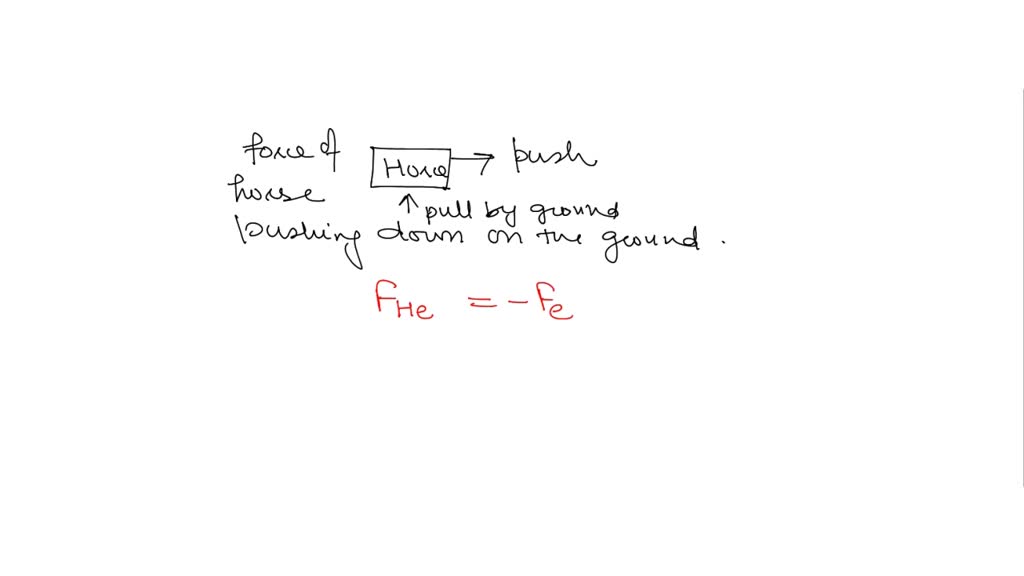 force of
Horse
push
horse
↑ pull by ground
pushing down on the ground.
F_He = -F_e